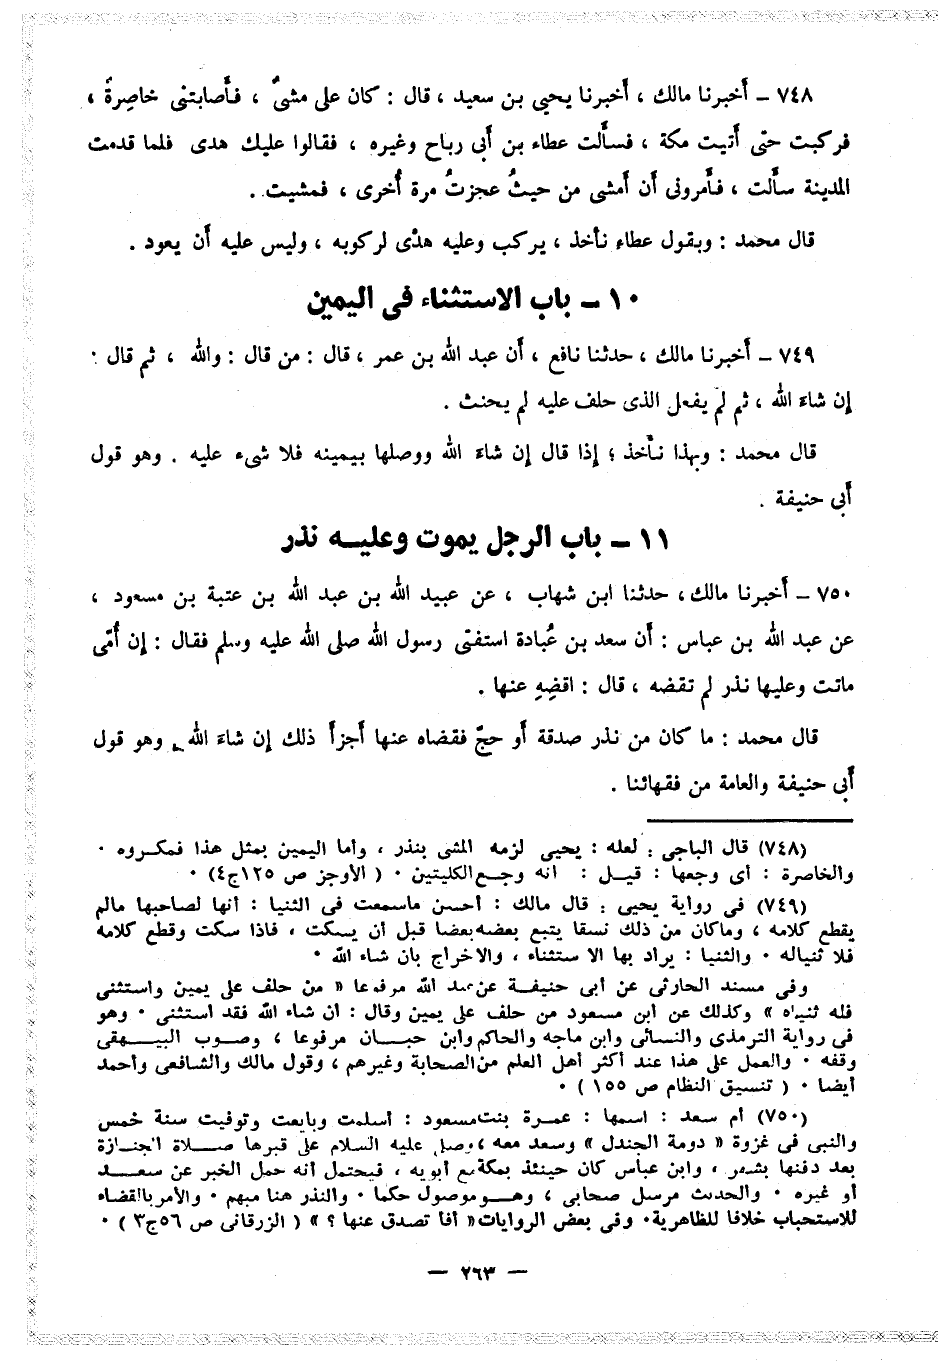 ٧٤٨ ـ أخبرنا مالك ، أخبرنا يحيى بن سعيد ، قال : كان على مشىٌ ، فأصابتنى خاصِرةٌ ،
فركبت حتى أتيت مكة ، فسألت عطاء بن أبى رباح وغيره ، فقالوا عليك هدى فلما قدمت
المدينة سألت ، فأمرونى أن أمشى من حيثُ عجزتُ مرة أُخرى ، فمشيت .
قال محمد : وبقول عطاء نأخذ ، يركب وعليه هدْى لركوبه ، وليس عليه أن يعود .
١٠ ـ باب الاستثناء فى اليمين
٧٤٩ ـ أخبرنا مالك ، حدثنا نافع ، أن عبد الله بن عمر ، قال : من قال : والله ، ثم قال :
إن شاء الله ، ثم لم يفعل الذى حلف عليه لم يحنث .
قال محمد : وبهذا نأخذ ؛ إذا قال إن شاء الله ووصلها بيمينه فلا شىء عليه . وهو قول
أبى حنيفة .
١١ ـ باب الرجل يموت وعليه نذر
٧٥٠ ـ أخبرنا مالك ، حدثنا ابن شهاب ، عن عبيد الله بن عبد الله بن عتبة بن مسعود ،
عن عبد الله بن عباس : أن سعد بن عُبادة استفتى رسول الله صلى الله عليه وسلم فقال : إن أُمّى
ماتت وعليها نذر لم تقضه ، قال : اقضِهِ عنها .
قال محمد : ما كان من نذر صدقة أو حجّ فقضاه عنها أجزأ ذلك إن شاء الله ، وهو قول
أبى حنيفة والعامة من فقهائنا .
(٧٤٨) قال الباجى : لعله : يحيى لزمه المشى بنذر ، وأما اليمين بمثل هذا فمكروه ٠
والخاصرة : أى وجعها : قيل : انه وجع الكليتين ٠ ( الأوجز ص ١٢٥ج٤) ٠
(٧٤٩) فى رواية يحيى : قال مالك : أحسن ماسمعت فى الثنيا : أنها لصاحبها مالم
يقطع كلامه ، وماكان من ذلك نسقا يتبع بعضه بعضا قبل أن يسكت ، فاذا سكت وقطع كلامه
فلا ثنياله ٠ والثنيا : يراد بها الاستثناء ، والاخراج بان شاء الله ٠
وفى مسند الحارثى عن أبى حنيفة عن عبد الله مرفوعا « من حلف على يمين واستثنى
فله ثنياه » وكذلك عن ابن مسعود من حلف على يمين وقال : ان شاء الله فقد استثنى ٠ وهو
فى رواية الترمذى والنسائى وابن ماجه والحاكم وابن حبان مرفوعا ، وصوب البيهقى
وقفه ٠ والعمل على هذا عند أكثر أهل العلم من الصحابة وغيرهم ، وقول مالك والشافعى وأحمد
أيضا ٠ ( تنسيق النظام ص ١٥٥ ) ٠
(٧٥٠) أم سعد : اسمها : عمرة بنت مسعود : أسلمت وبايعت وتوفيت سنة خمس
والنبى فى غزوة « دومة الجندل » وسعد معه ، وصلى عليه السلام على قبرها صلاة الجنازة
بعد دفنها بشهر ، وابن عباس كان حينئذ بمكة مع أبويه ، فيحتمل أنه حمل الخبر عن سعد
أو غيره ٠ والحديث مرسل صحابى ، وهو موصول حكما ٠ والنذر هنا مبهم ٠ والأمر بالقضاء
للاستحباب خلافا للظاهرية ٠ وفى بعض الروايات « أفا تصدق عنها ؟ » ( الزرقانى ص ٥٦ج٣ ) ٠
— ٢٦٣ —